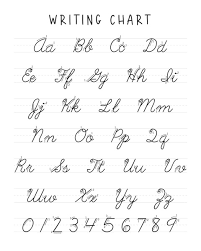 WRITING CHART
Aa Bb Cc Dd
Ee Ff Gg Hh Ii
Jj Kk Ll Mm
Nn Oo Pp Qq
Rr Ss Tt Uu Vv
Ww Xx Yy Zz
0 1 2 3 4 5 6 7 8 9